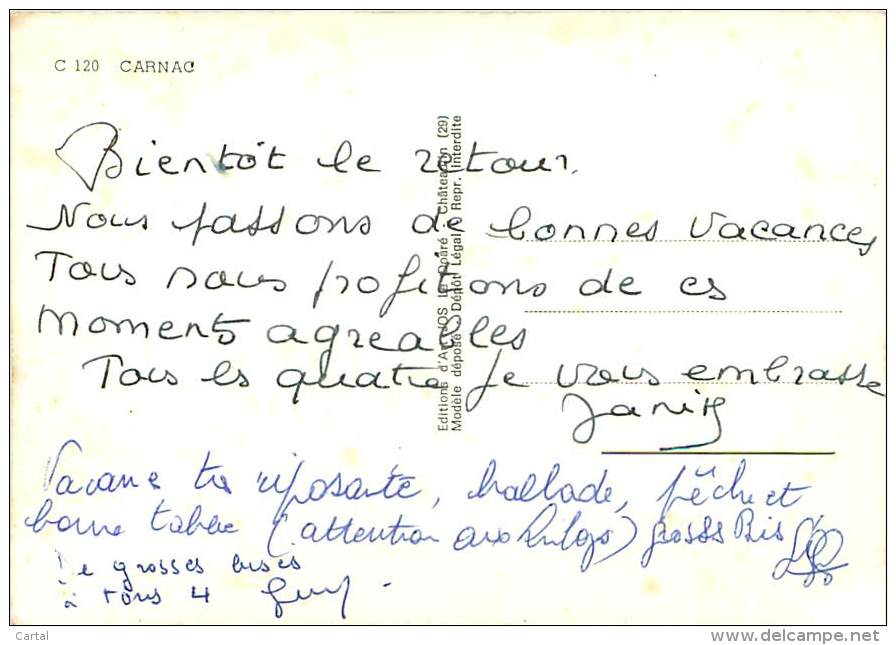 C 120 CARNAC
Bientôt le retour.
Nous passons de bonnes vacances
Tous nous profitons de ces
moments agreables
Tous les quatre je vous embrasse
Editions d'Art JOS Le Doaré - Châteaulin (29)
Modèle déposé - Dépôt Légal - Repr. Interdite
Vacance tres reposante, ballade, pêche et
bonne table (attention aux kilogs) grosses Bis
De grosses bises
à tous 4 Guy.
Cartal
delcampe.net